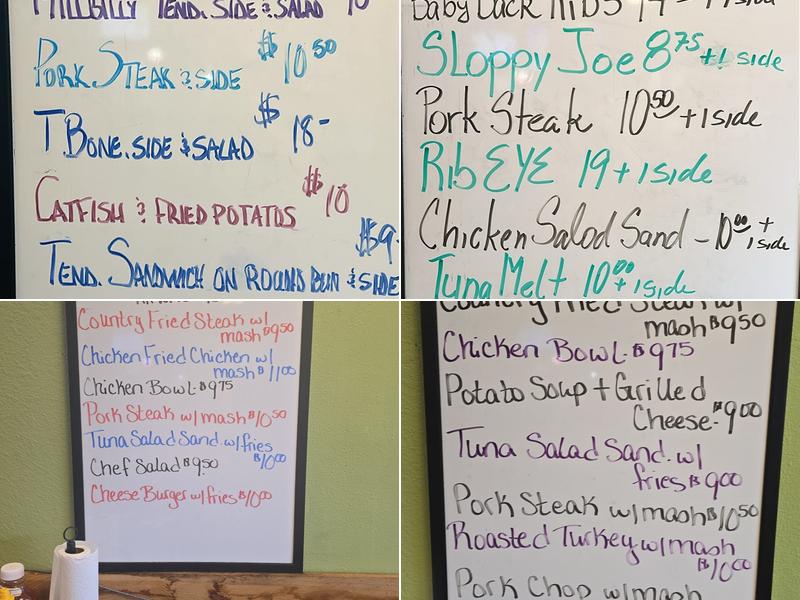 HILLBILLY TEND. SIDE & SALAD 10
PORK STEAK & SIDE $10 50
T BONE. SIDE & SALAD $18-
CATFISH & FRIED POTATOS $10
TEND. SANDWICH ON ROUND BUN & SIDE $9.
Baby Back Ribs
Sloppy Joe 8 75 +1 side
Pork Steak 10 50 +1 side
Rib EYE 19 + 1 side
Chicken Salad Sand - 10 00 + 1 side
Tuna Melt 10 00 + 1 side
Country Fried Steak w/
mash $9 50
Chicken Fried Chicken w/
mash $11 00
Chicken Bowl - $9 75
Pork Steak w/ mash $10 50
Tuna Salad Sand. w/ fries
$10 00
Chef Salad $9.50
Cheese Burger w/ fries $10 00
Country Fried Steak w/
mash $9 50
Chicken Bowl - $9 75
Potato Soup + Grilled
Cheese - $9 00
Tuna Salad Sand. w/
fries $9 00
Pork Steak w/ mash $10 50
Roasted Turkey w/ mash
$10 00
Pork Chop w/ mash